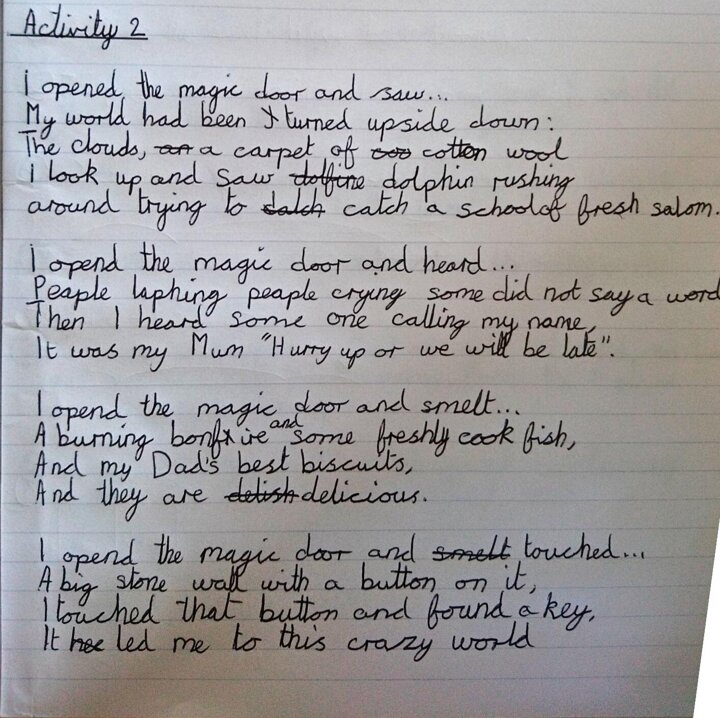 Activity 2
I opened the magic door and saw...
My world had been turned upside down:
The clouds, an a carpet of coo cotton wool
I look up and saw dolfine dolphin rushing
around trying to catch a school of fresh salom.
I opend the magic door and heard...
Peaple laphing peaple crying some did not say a word
Then I heard some one calling my name,
It was my Mum "Hurry up or we will be late".
I opend the magic door and smelt...
A burning bonfire and some freshly cook fish,
And my Dad's best biscuits,
And they are delish delicious.
I opend the magic door and smelt touched...
A big stone wall with a button on it,
I touched that button and found a key,
It led me to this crazy world